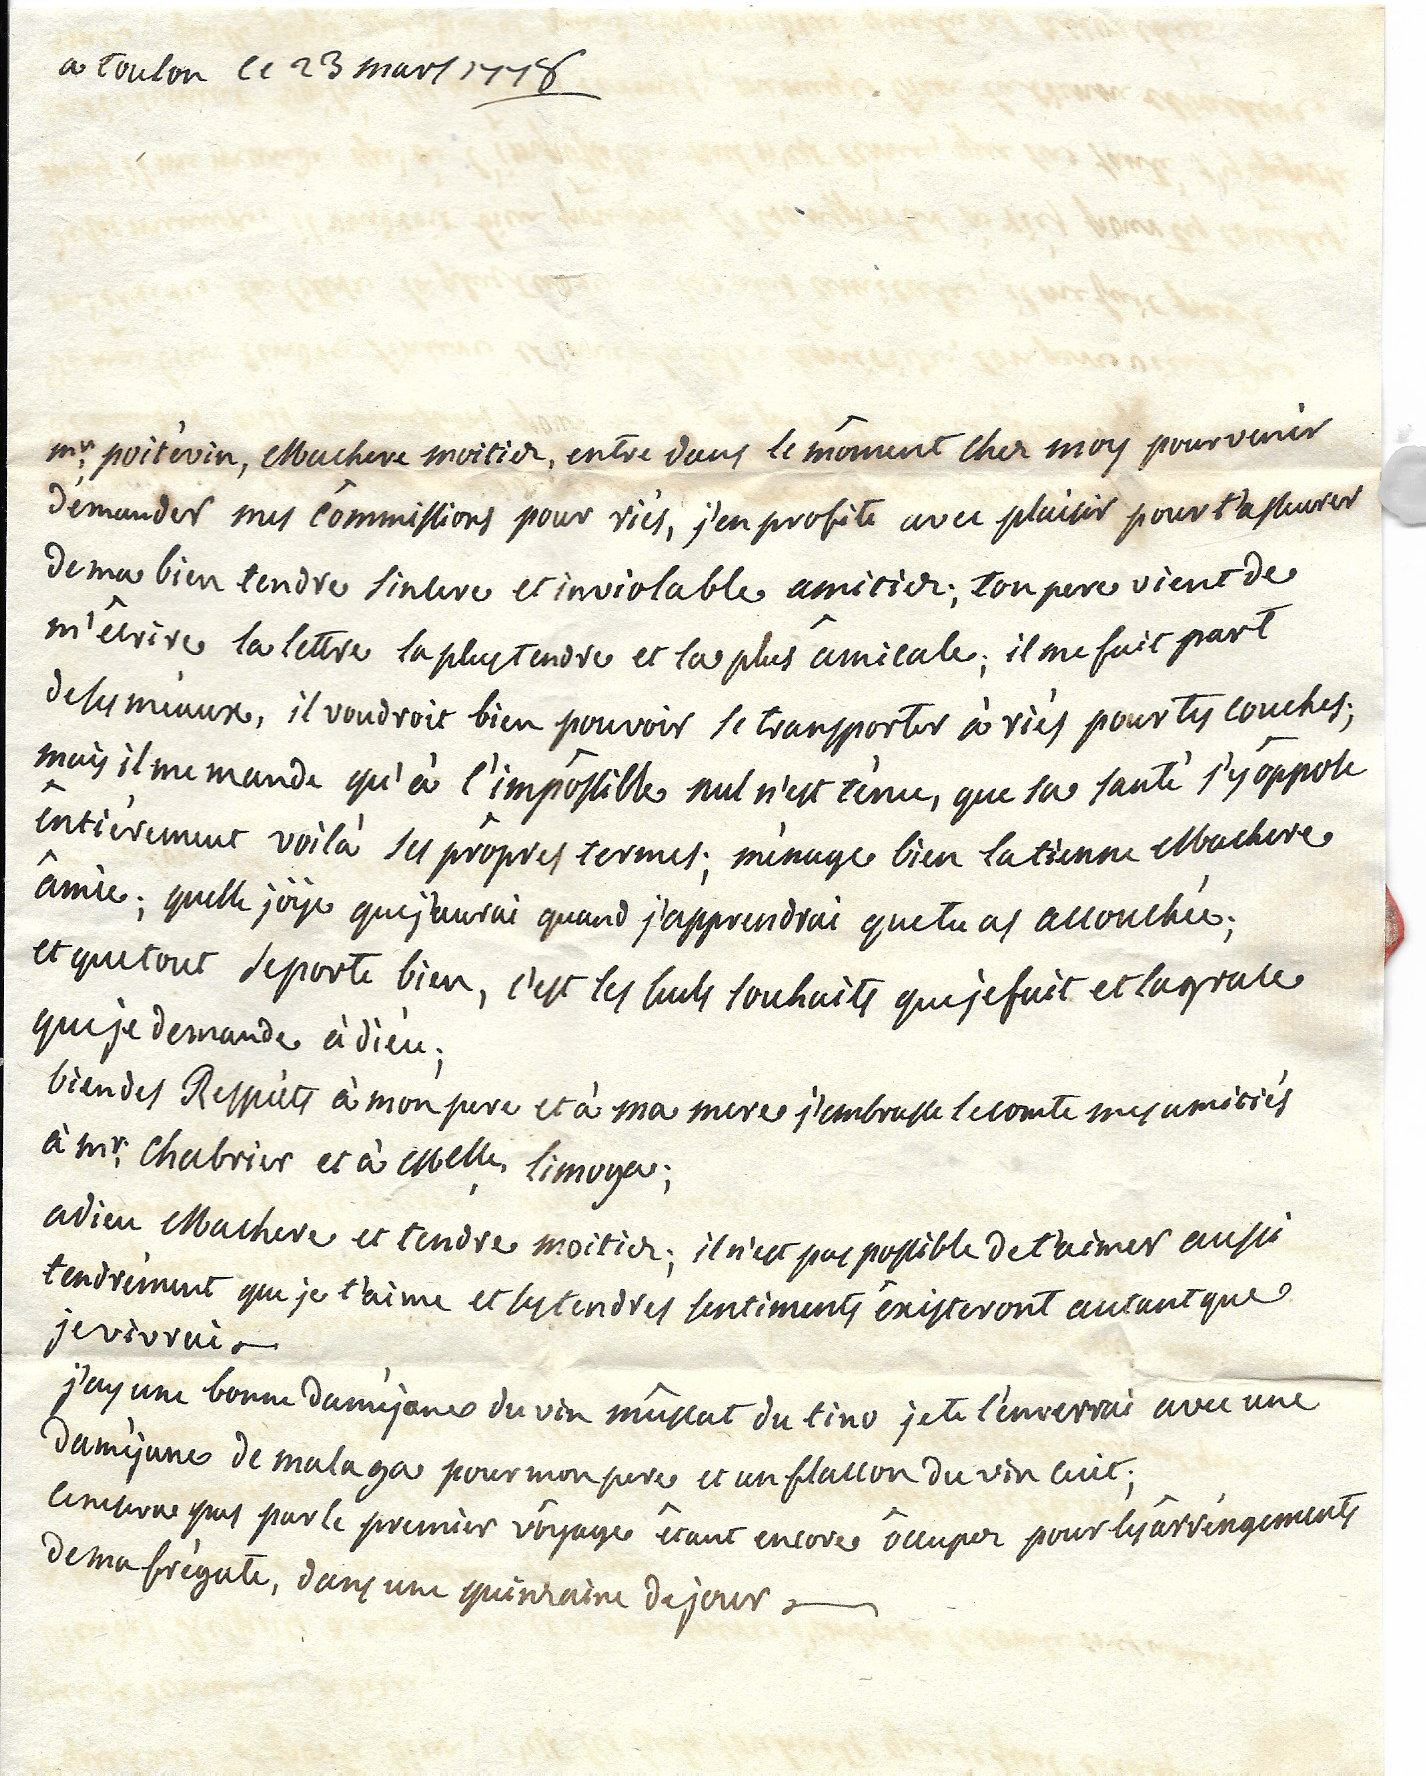 a toulon le 23 mars 1778
mr. poitévin, Machere moitiez, entre dans le môment chez moy pour venir
démander mes cômmissions pour riés, j'en profite avec plaisir pour t'asseurer
de ma bien tendre sincere et inviolable amitiez; ton pere vient de
m'êcrire la lettre la plus tendre et la plus âmicale; il me fait part
de ses méaux, il voudroit bien pouvoir se transporter à riés pour tes couches;
mais il me mande qu'à l'impôssible nul n'est ténu, que sa santé s'y ôppose
êntiérement voilà ses prôpres termes; ménage bien la tienne Machere
âmie; quelle jöye que j'aurai quand j'apprendrai que tu as accouchée;
et que tout se porte bien, c'est les seuls souhaits que je fait et la grace
que je demande à diéu;
bien des Respécts à mon pere et à ma mere j'embrasse le comte mes amitiés
à mr. Chabrier et à Melle. limoge;
adieu Machere et tendre moitiez; il n'est pas possible de t'aimer aussi
tendrément que je t'aime et ses tendres sentiments êxisteront autant que
je vivrai
j'ay une bonne daméjane du vin mûscat du tino je te l'énverrai avec une
daméjane de malaga pour mon pere et un flaccon du vin cuit;
ce ne sera pas par le premier vôyage êtant encore ôccuper pour les ârréngements
de ma frégate, dans une quinzaine de jour